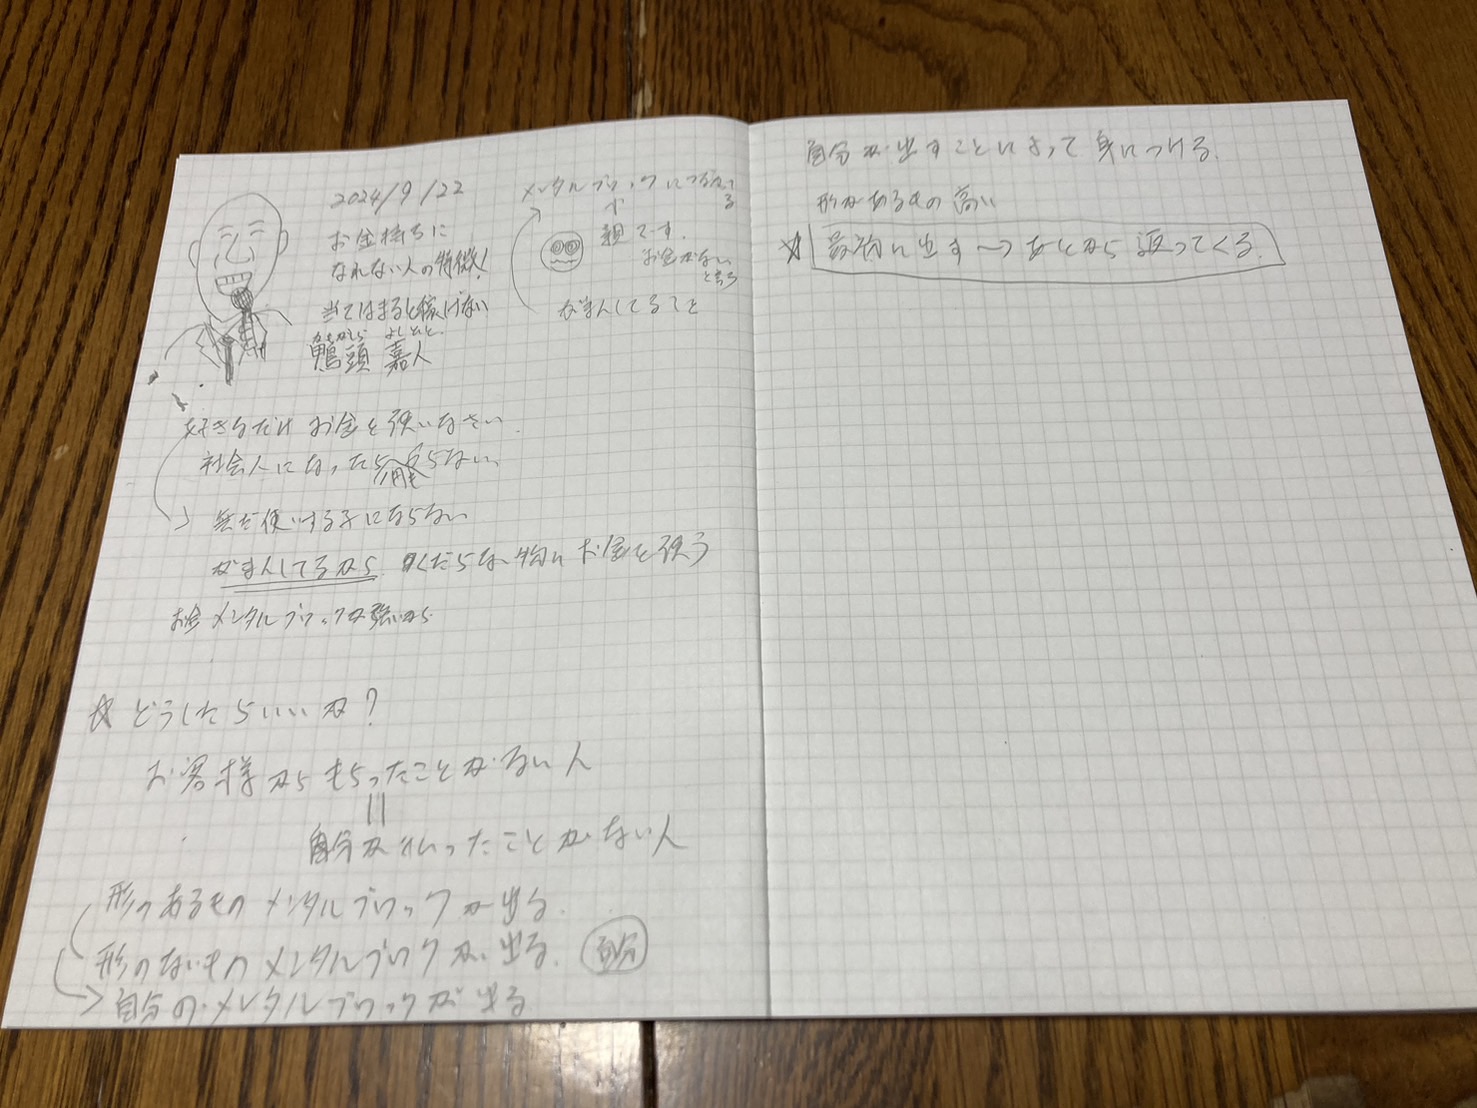 2024/9/22
お金持ちに
なれない人の特徴!
当てはまると稼げない
かもがしら よしひと
鴨頭 嘉人
メンタルブロックに
る
親です。
お金がない
がまんしてること
好きなだけ お金を使いなさい
社会人になったら
無だ使いする子にならない
がまんしてるから くだらない物に お金を使う
お金 メンタルブロックが強いから
☆ どうしたらいいか?
お客様からもらったことがない人
||
自分が払ったことがない人
形のあるもの メンタルブロックが出る。
形のないもの メンタルブロックが出る。 自分
自分の メンタルブロックが出る
自分が出すことによって身につける。
形があるもの 高い
☆ 最初に出す → あとから返ってくる。